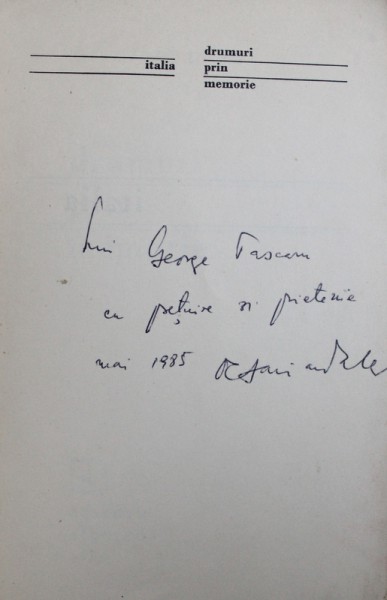 drumuri
italia prin
memorie
Lui George
cu prețuire și prietenie
mai 1985